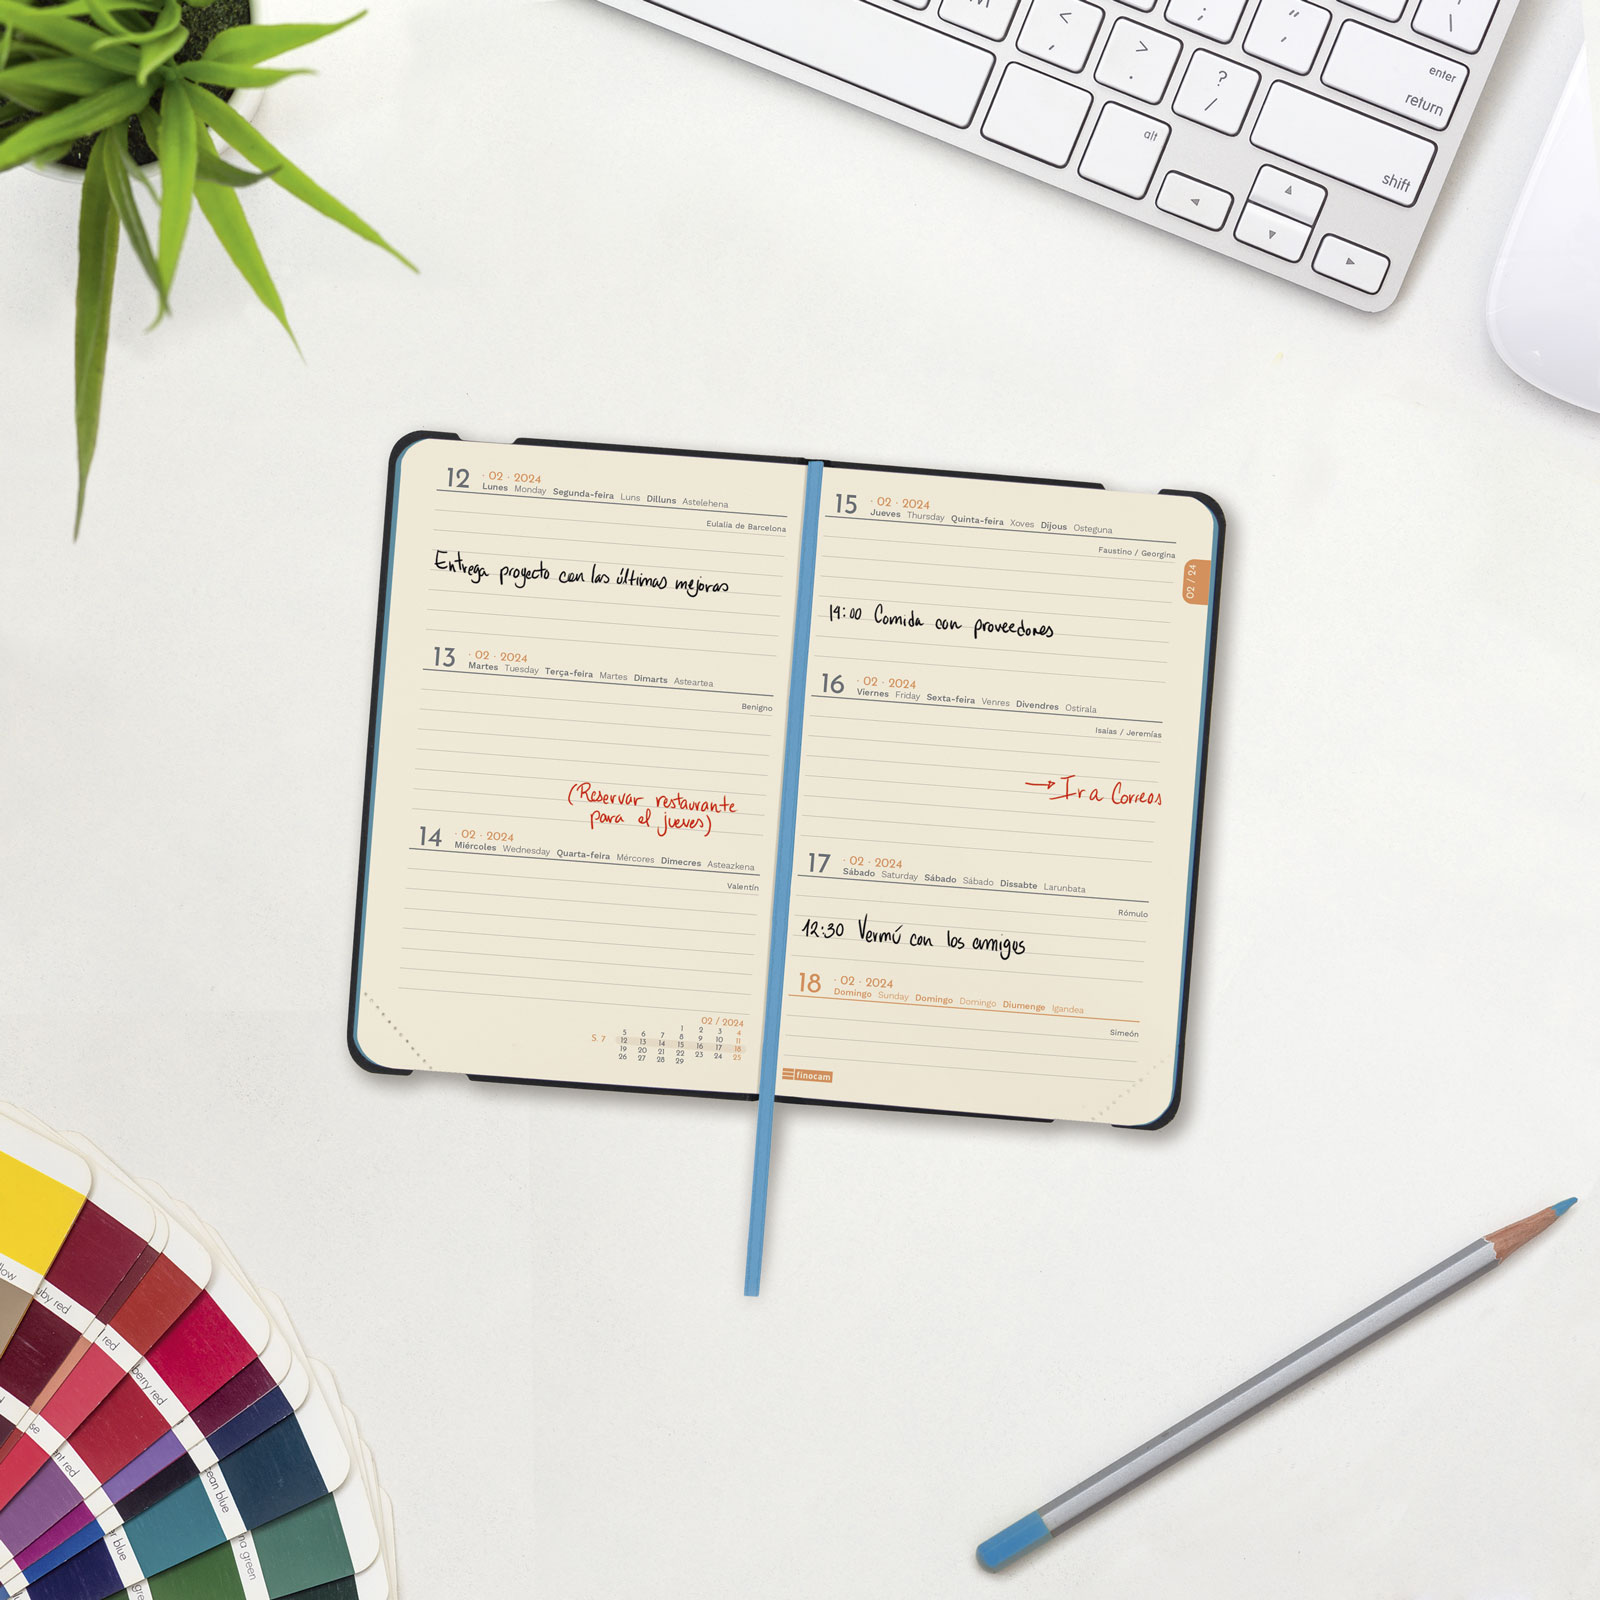 M
<
,
>
.
?
/
;
"
,
enter
return
alt
shift
12 · 02 · 2024
Lunes Monday Segunda-feira Luns Dilluns Astelehena
Eulalia de Barcelona
Entrega proyecto con las últimas mejoras
13 · 02 · 2024
Martes Tuesday Terça-feira Martes Dimarts Asteartea
Benigno
(Reservar restaurante
para el jueves)
14 · 02 · 2024
Miércoles Wednesday Quarta-feira Mércores Dimecres Asteazkena
Valentín
02 / 2024
1 2 3 4
5 6 7 8 9 10 11
S. 7 12 13 14 15 16 17 18
19 20 21 22 23 24 25
26 27 28 29
15 · 02 · 2024
Jueves Thursday Quinta-feira Xoves Dijous Osteguna
Faustino / Georgina
02 / 24
14:00 Comida con proveedores
16 · 02 · 2024
Viernes Friday Sexta-feira Venres Divendres Ostirala
Isaías / Jeremías
→ Ir a Correos
17 · 02 · 2024
Sábado Saturday Sábado Sábado Dissabte Larunbata
Rómulo
12:30 Vermú con los amigos
18 · 02 · 2024
Domingo Sunday Domingo Domingo Diumenge Igandea
Simeón
finocam
low
uby red
red
berry red
se
nt red
ean blue
r blue
na green
gre